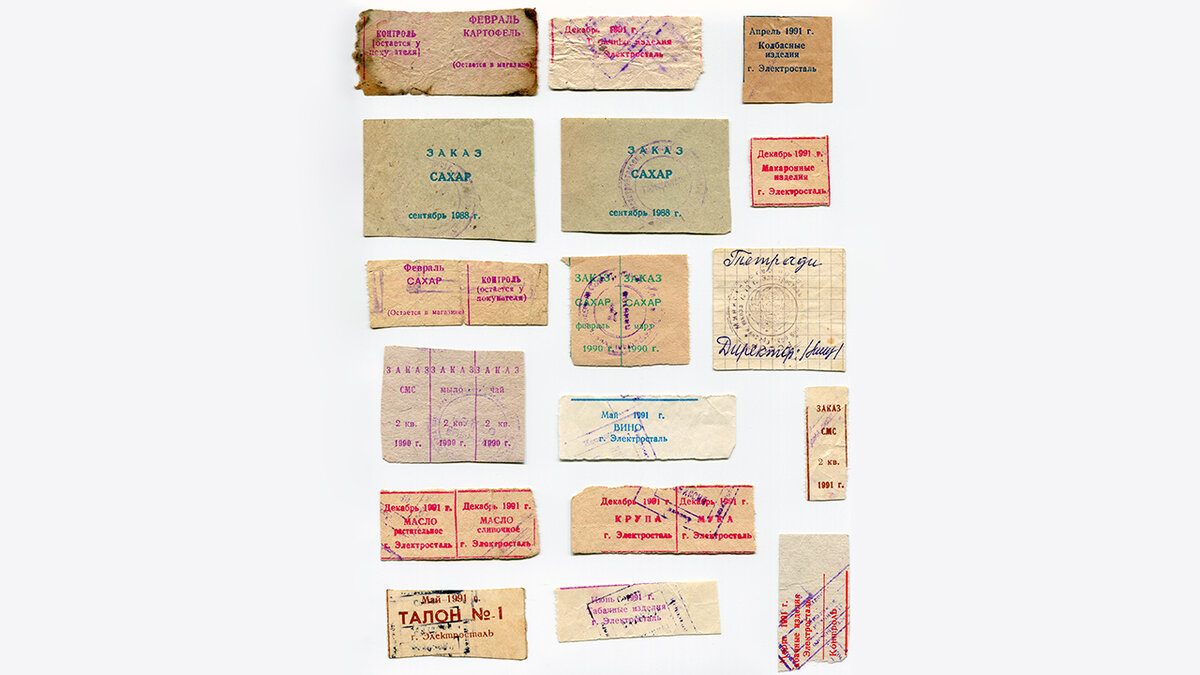 ФЕВРАЛЬ
КАРТОФЕЛЬ
КОНТРОЛЬ
(остается у
покупателя)
(Остается в магазине)
Декабрь 1991 г.
изделия
г. Электросталь
Апрель 1991 г.
Колбасные
изделия
г. Электросталь
ЗАКАЗ
САХАР
сентябрь 1988 г.
ЗАКАЗ
САХАР
сентябрь 1988 г.
Декабрь 1991 г.
Макаронные
изделия
г. Электросталь
Февраль
САХАР
(Остается в магазине)
КОНТРОЛЬ
(остается у
покупателя)
ЗАКАЗ
САХАР
февраль
1990 г.
ЗАКАЗ
САХАР
март
1990 г.
Тетради
Директор:
ЗАКАЗ
СМС
2 кв.
1990 г.
ЗАКАЗ
мыло
2 кв.
1990 г.
ЗАКАЗ
чай
2 кв.
1990 г.
Май 1991 г.
ВИНО
г. Электросталь
ЗАКАЗ
СМС
2 кв.
1991 г.
Декабрь 1991 г.
МАСЛО
растительное
г. Электросталь
Декабрь 1991 г.
МАСЛО
сливочное
г. Электросталь
Декабрь 1991 г.
КРУПА
г. Электросталь
Декабрь 1991 г.
МУКА
г. Электросталь
Май 1991 г.
ТАЛОН № 1
г. Электросталь
Июнь 1991 г.
абачные изделия
г. Электросталь
1991 г.
абачные изделия
Электросталь
Контроль